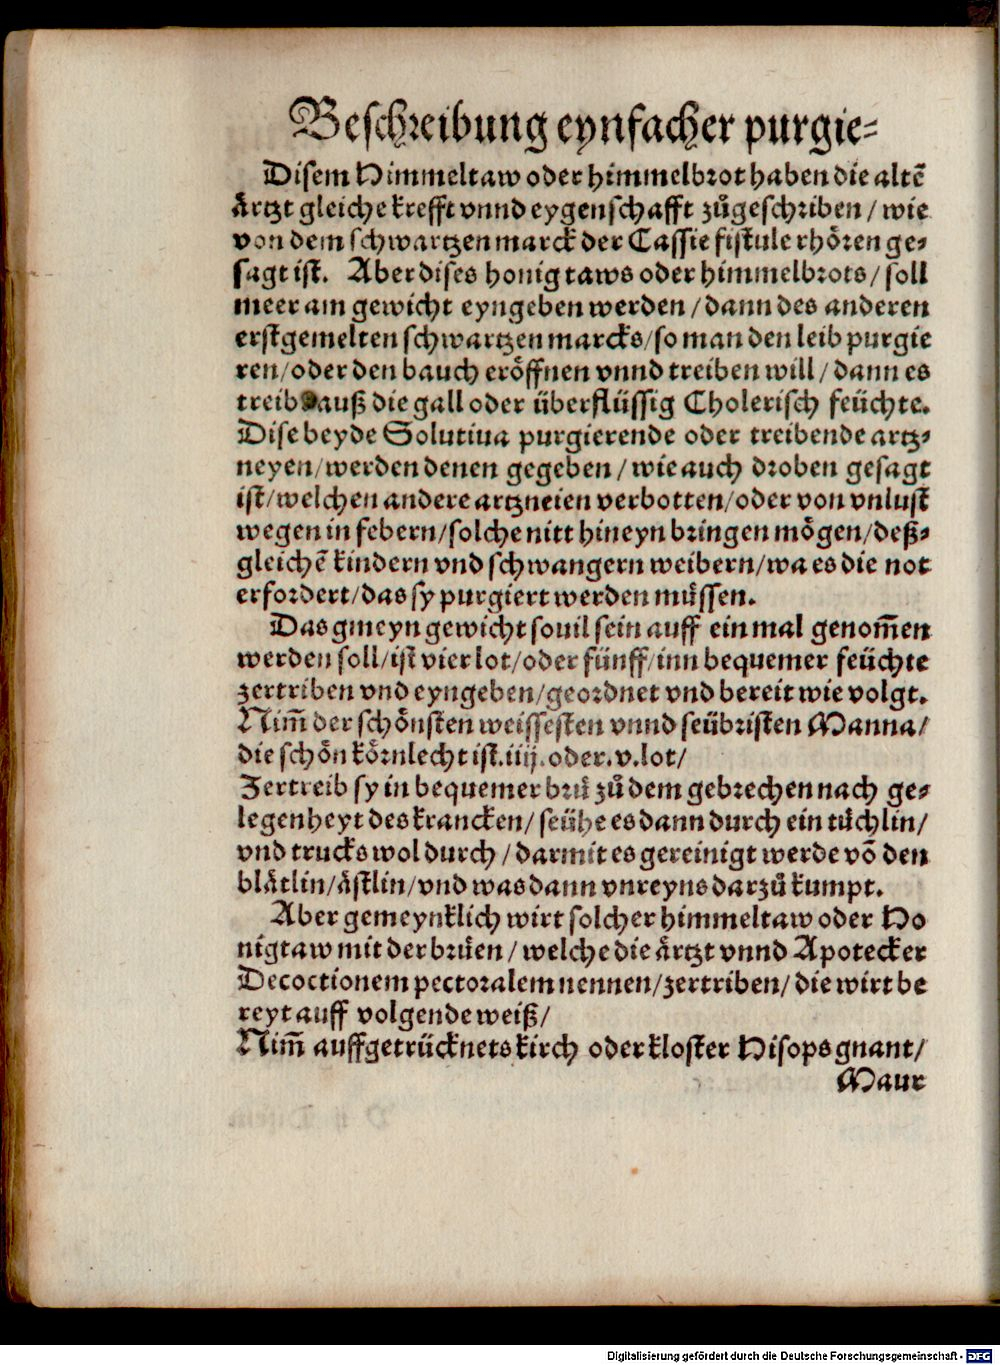 Beschreibung eynfacher purgie-
Disem Himmeltaw oder himmelbrot haben die altẽ
årtzt gleiche krefft vnnd eygenschafft zůgeschriben / wie
von dem schwartzen marck der Cassie fistule rhören ge-
sagt ist. Aber dises honigtaws oder himmelbrots / soll
meer am gewicht eyngeben werden / dann des anderen
erstgemelten schwartzen marcks / so man den leib purgie
ren / oder den bauch eröffnen vnnd treiben will / dann es
treibt auß die gall oder überflüssig Cholerisch feüchte.
Dise beyde Solutiua purgierende oder treibende artz-
neyen / werden denen gegeben / wie auch droben gesagt
ist / welchen andere artzneien verbotten / oder von vnlust
wegen in febern / solche nitt hineyn bringen mögen / deß-
gleichẽ kindern vnd schwangern weibern / wa es die not
erfordert / das sy purgiert werden müssen.
Das gmeyn gewicht souil sein auff ein mal genom̃en
werden soll / ist vier lot / oder fünff / inn bequemer feüchte
zertriben vnd eyngeben / geordnet vnd bereit wie volgt.
Nim̃ der schönsten weissesten vnnd seübristen Manna /
die schön körnlecht ist. iiij. oder. v. lot /
Zertreib sy in bequemer brů zů dem gebrechen nach ge-
legenheyt des krancken / seühe es dann durch ein tůchlin /
vnd trucks wol durch / darmit es gereinigt werde võ den
blåtlin / åstlin / vnd was dann vnreyns darzů kumpt.
Aber gemeynklich wirt solcher himmeltaw oder Ho
nigtaw mit der brůen / welche die årtzt vnnd Apotecker
Decoctionem pectoralem nennen / zertriben / die wirt be
reyt auff volgende weiß /
Nim̃ auffgetrücknets kirch oder kloster Hisops gnant /
Maur
Digitalisierung gefördert durch die Deutsche Forschungsgemeinschaft - DFG